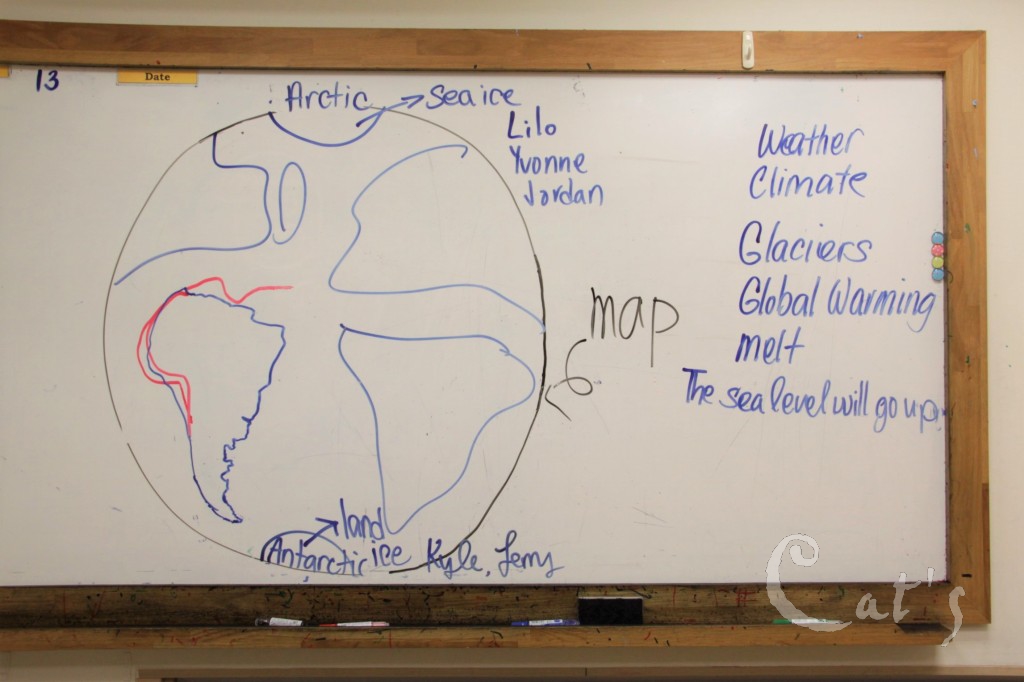 13
Date
Arctic
Sea ice
Lilo
Yvonne
Jordan
map
land
ice
Antarctic
Kyle, Jerry
Weather
Climate
Glaciers
Global Warming
melt
The sea level will go up.
Cat's